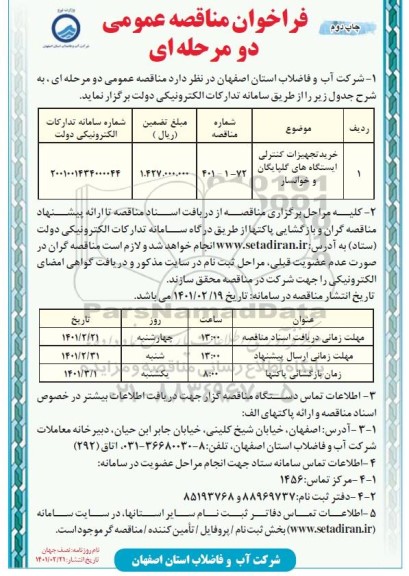 چاپ دوم
فراخوان مناقصه عمومی
دو مرحله ای
۱- شرکت آب و فاضلاب استان اصفهان در نظر دارد مناقصه عمومی دو مرحله ای ، به
شرح جدول زیر را از طریق سامانه تدارکات الکترونیکی دولت برگزار نماید.
ردیف موضوع شماره مناقصه مبلغ تضمین (ریال) شماره سامانه تدارکات الکترونیکی دولت
۱ خرید تجهیزات کنترلی ایستگاه های گلپایگان و خوانسار ۴۰۱-۱-۷۲ ۱.۴۲۷.۰۰۰.۰۰۰ ۲۰۰۱۰۰۱۴۳۴۰۰۰۰۴۴
۲- کلیـه مراحل برگزاری مناقصـه از دریافت اسـناد مناقصه تا ارائه پیشـنهاد
مناقصه گران و بازگشایی پاکتها از طریق درگاه سـامانه تدارکات الکترونیکی دولت
(ستاد) به آدرس: www.setadiran.ir انجام خواهد شد و لازم است مناقصه گران در
صورت عدم عضویت قبلی، مراحل ثبت نام در سایت مذکور و دریافت گواهی امضای
الکترونیکی را جهت شرکت در مناقصه محقق سازند.
تاریخ انتشار مناقصه در سامانه: تاریخ ۱۴۰۱/۰۲/۱۹ می باشد.
عنوان ساعت روز تاریخ
مهلت زمانی دریافت اسناد مناقصه ۱۳:۰۰ چهارشنبه ۱۴۰۱/۲/۲۱
مهلت زمانی ارسال پیشنهاد ۱۳:۰۰ شنبه ۱۴۰۱/۲/۳۱
زمان بازگشائی پاکتها ۸:۰۰ یکشنبه ۱۴۰۱/۳/۱
۳- اطلاعات تماس دسـتگاه مناقصه گزار جهت دریافت اطلاعات بیشتر در خصوص
اسناد مناقصه و ارائه پاکتهای الف:
۳-۱- آدرس: اصفهان، خیابان شیخ کلینی، خیابان جابر ابن حیان، دبیرخانه معاملات
شرکت آب و فاضلاب استان اصفهان، تلفن: ۸-۳۶۶۸۰۰۳۰-۰۳۱ اتاق (۲۹۲)
۴- اطلاعات تماس سامانه ستاد جهت انجام مراحل عضویت در سامانه:
۴-۱- مرکز تماس: ۱۴۵۶
۴-۲- دفتر ثبت نام: ۸۸۹۶۹۷۳۷ و ۸۵۱۹۳۷۶۸
۵- اطلاعـات تمـاس دفاتـر ثبـت نـام سـایر استانها، در سـایت سـامانه
(www.setadiran.ir) بخش ثبت نام / پروفایل / تأمین کننده / مناقصه گر موجود است.
نام روزنامه: نصف جهان
تاریخ انتشار: ۱۴۰۱/۰۲/۲۱
شرکت آب و فاضلاب استان اصفهان